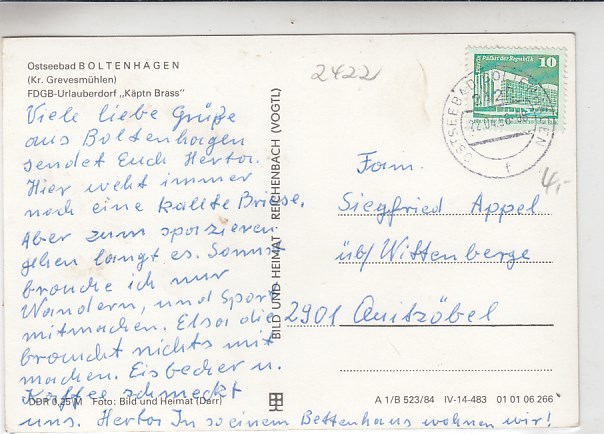 Ostseebad BOLTENHAGEN
(Kr. Grevesmühlen)
FDGB-Urlauberdorf „Käptn Brass"
Viele liebe Grüße
aus Boltenhagen
sendet Euch Herta.
Hier weht immer
noch eine kallte Briese.
Aber zum spazieren
gehen langt es. Sonnst
brauche ich nur
Wandern, und Sport
mitmachen. Elsa die
braucht nichts mit
machen. Eisbecher u.
Kaffee schmeckt
uns. Herta In so einem Bettenhaus wohnen wir!
DDR 0,25 M Foto: Bild und Heimat (Darr)
BILD UND HEIMAT REICHENBACH (VOGTL)
2422
Palast der Republik 10
OSTSEEBAD BOLTENHAGEN
4,-
Fam.
Siegfried Appel
üb/Wittenberge
2901 Quitzöbel
A 1/B 523/84 IV-14-483 01 01 06 266